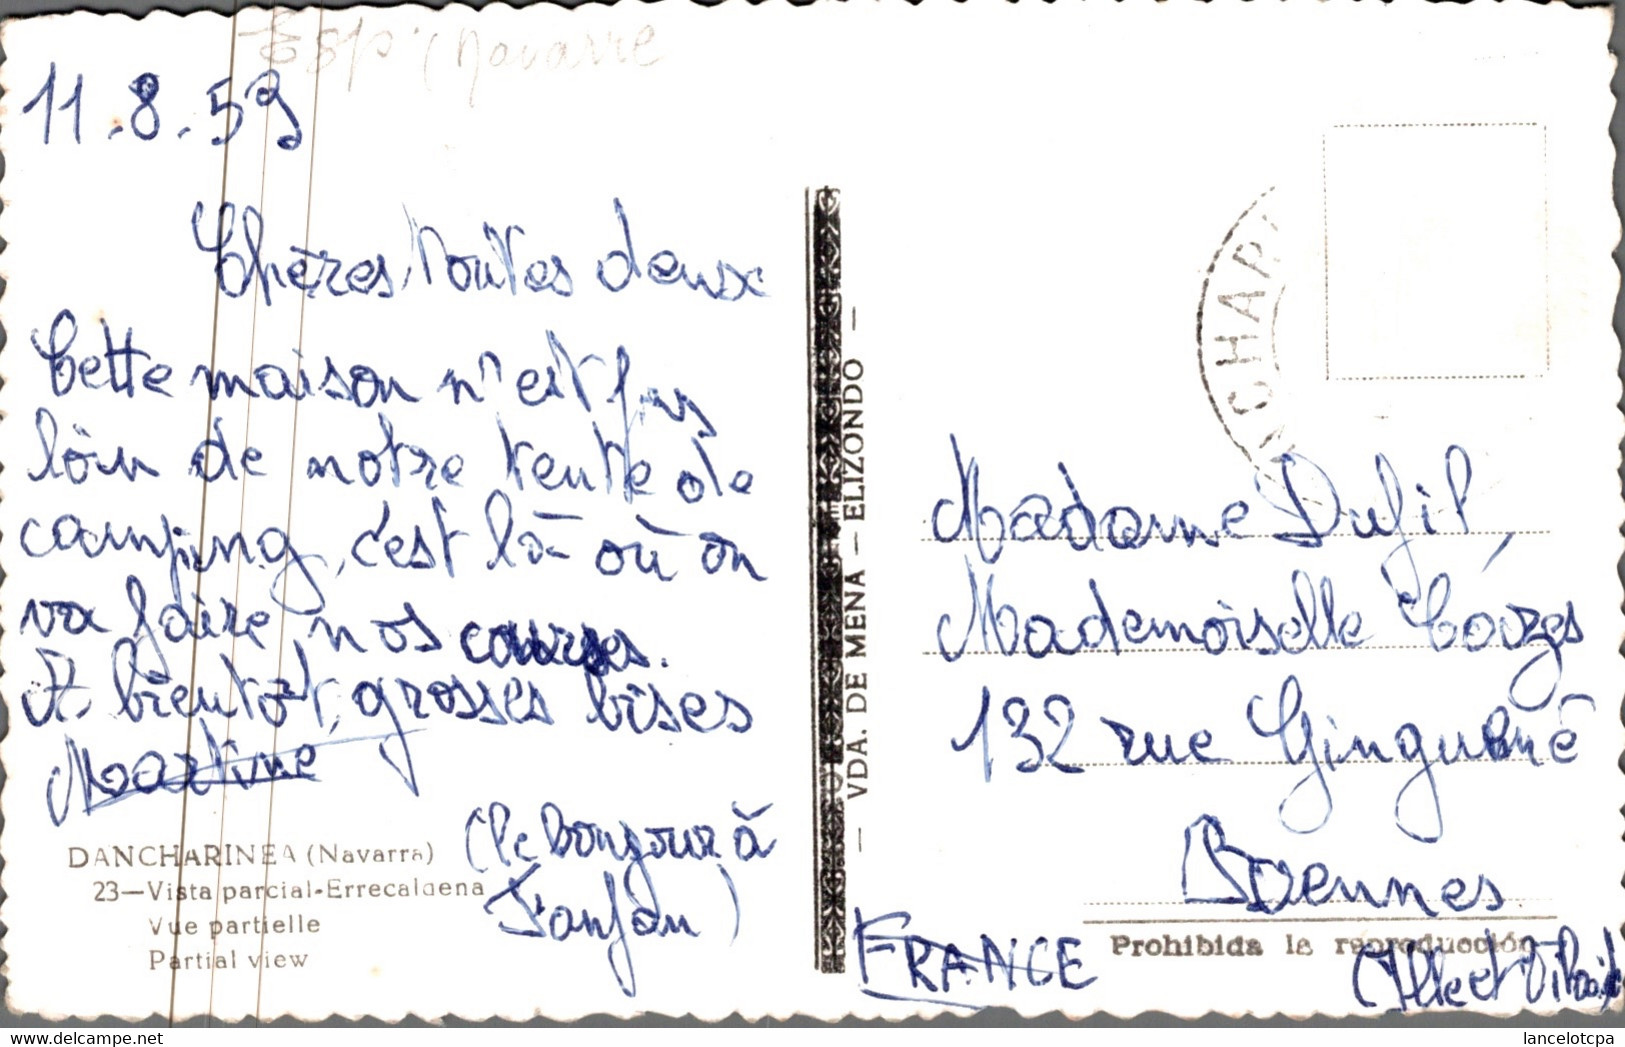 Esp. (Navarre
11.8.59
Chères toutes deux
Cette maison n'est pas
loin de notre tente de
camping, c'est là où on
va faire nos courses.
A bientôt, grosses bises
Martine
(le bonjour à
Fanfan)
DANCHARINEA (Navarra)
23—Vista parcial-Errecaldena
Vue partielle
Partial view
— VDA. DE MENA — ELIZONDO —
NCHARI
Madame Dufil,
Mademoiselle
132 rue Ginguené
Rennes
FRANCE
Prohibida la reproducción
(Ille et Vilaine)
lancelotcpa
www.delcampe.net